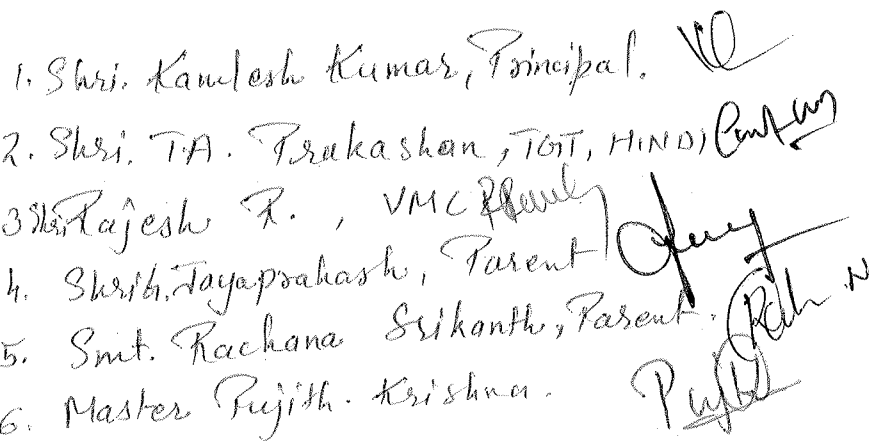 1. Shri. Kamlesh Kumar, Principal.
2. Shri. T.A. Prakashan, TGT, HINDI
3 Shri Rajesh R., VMC
4. Shri G. Jayaprakash, Parent
5. Smt. Rachana Srikanth, Parent.
6. Master Pujith. Krishna.